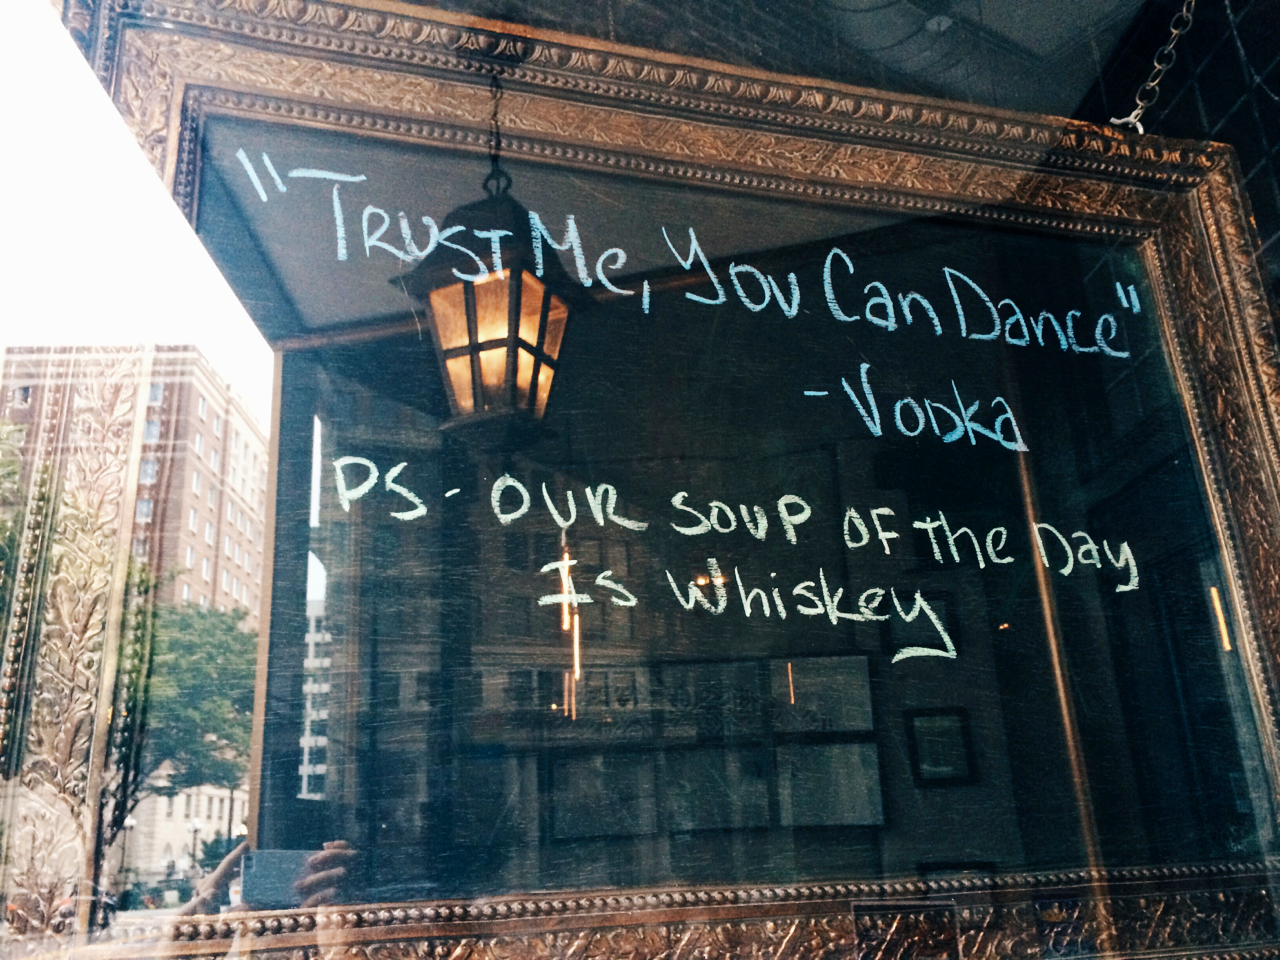 "Trust Me, You Can Dance"
- Vodka
PS - Our Soup of the Day
Is Whiskey